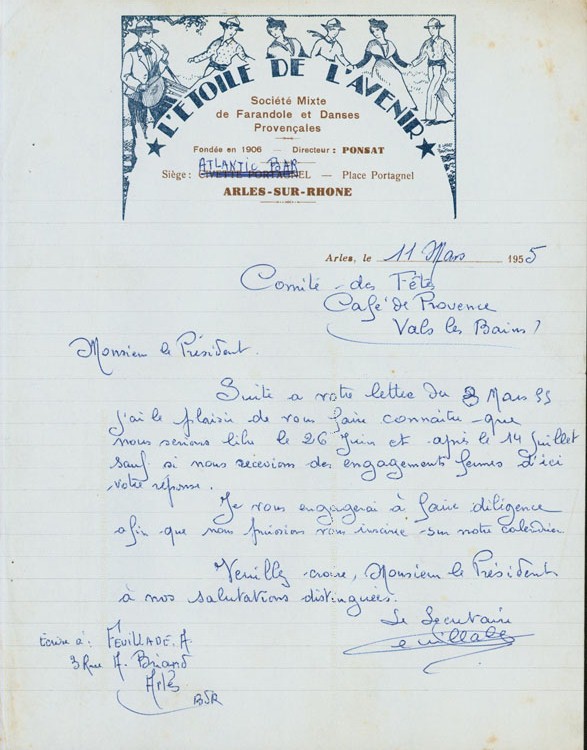 ★ L'ETOILE DE L'AVENIR ★
Société Mixte
de Farandole et Danses
Provençales
Fondée en 1906 — Directeur : PONSAT
ATLANTIC BAR
Siège : CIVETTE PORTAGNEL — Place Portagnel
ARLES-SUR-RHONE
Arles, le 11 Mars 1955
Comité des Fêtes
Café de Provence
Vals les Bains
Monsieur le Président.
Suite a votre lettre du 3 Mars 55
j'ai le plaisir de vous faire connaitre que
nous serions libre le 26 Juin et après le 14 Juillet
sauf si nous recevions des engagements fermes d'ici
votre réponse.
Je vous engagerai à faire diligence
afin que nous puissions vous inscrire sur notre calendrier
Veuillez croire, Monsieur le Président
à nos salutations distinguées.
Le Secrétaire
Ecrire à : FEUILLADE. A.
3 Rue A. Briand
Arles
BDR